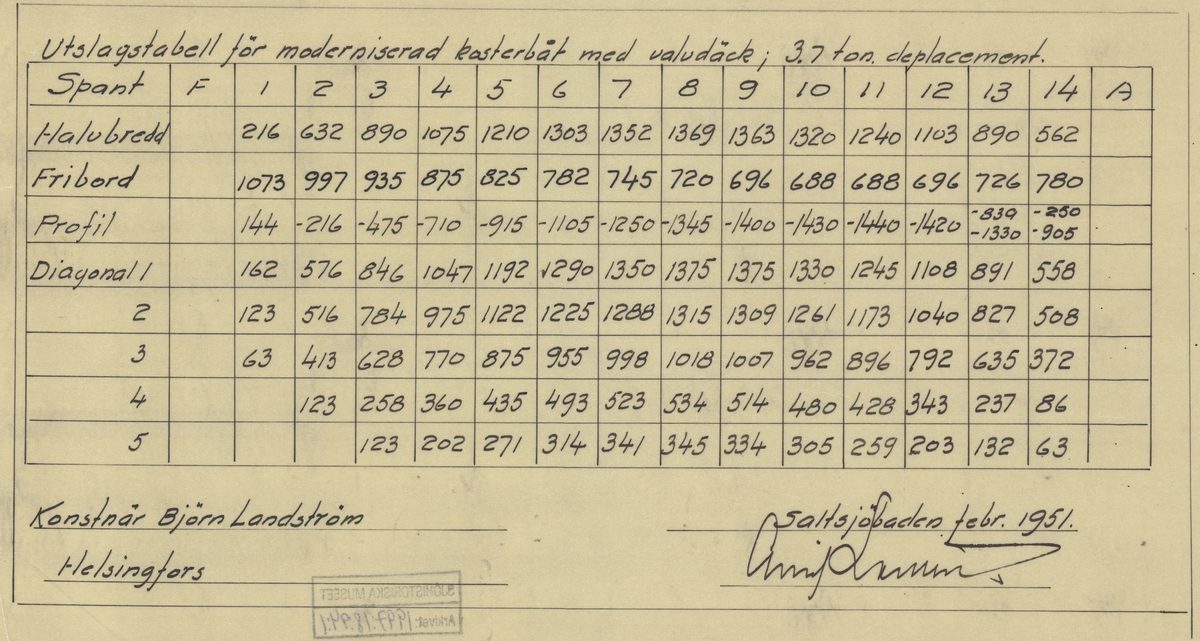 Utslagstabell för moderniserad kosterbåt med valvdäck; 3.7 ton. deplacement.
Spant F 1 2 3 4 5 6 7 8 9 10 11 12 13 14 A
Halvbredd 216 632 890 1075 1210 1303 1352 1369 1363 1320 1240 1103 890 562
Fribord 1073 997 935 875 825 782 745 720 696 688 688 696 726 780
Profil 144 -216 -475 -710 -915 -1105 -1250 -1345 -1400 -1430 -1440 -1420 -839 -1330 -250 -905
Diagonal 1 162 576 846 1047 1192 1290 1350 1375 1375 1330 1245 1108 891 558
2 123 516 784 975 1122 1225 1288 1315 1309 1261 1173 1040 827 508
3 63 413 628 770 875 955 998 1018 1007 962 896 792 635 372
4 123 258 360 435 493 523 534 514 480 428 343 237 86
5 123 202 271 314 341 345 334 305 259 203 132 63
Konstnär Björn Landström
Helsingfors
Saltsjöbaden febr. 1951.
SJÖHISTORISKA MUSEET
Arkivet: